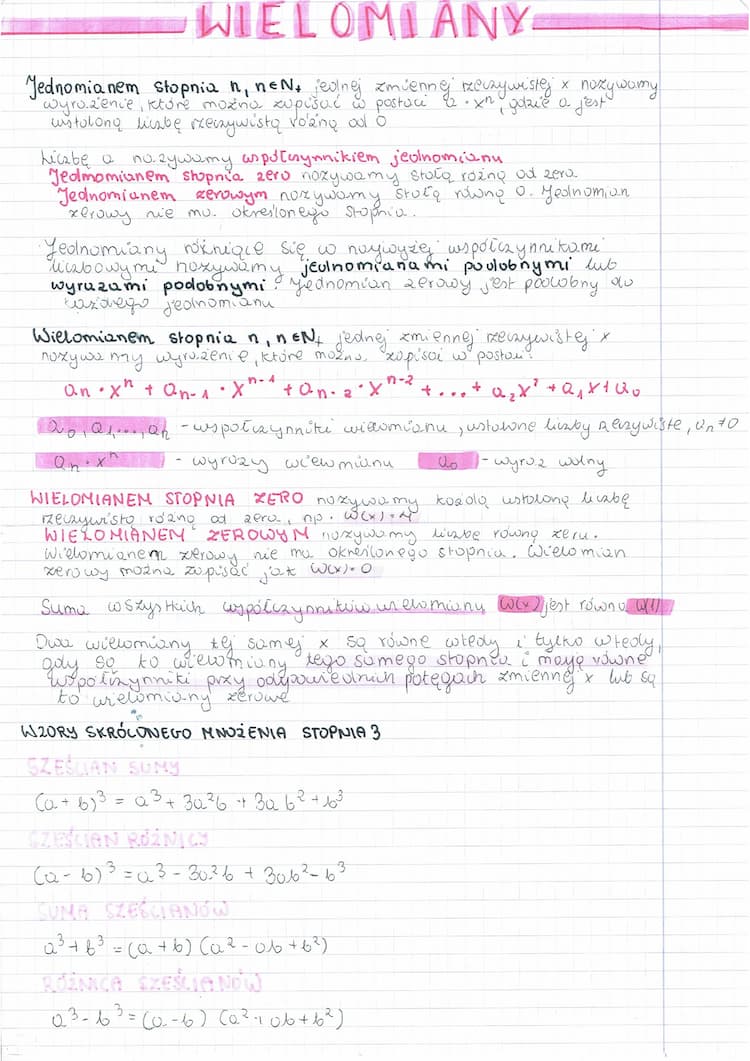 WIELOMIANY
Jednomianem stopnia n, n∈N₊ jednej zmiennej rzeczywistej x nazywamy
wyrażenie, które można zapisać w postaci a · xⁿ, gdzie a jest
ustaloną liczbę rzeczywistą różną od 0
Liczbę a nazywamy współczynnikiem jednomianu
Jednomianem stopnia zero nazywamy stałą różną od zera
Jednomianem zerowym nazywamy stałą równą 0. Jednomian
zerowy nie ma określonego stopnia.
Jednomiany różniące się co najwyżej współczynnikami
liczbowymi nazywamy jednomianami podobnymi lub
wyrazami podobnymi. Jednomian zerowy jest podobny do
każdego jednomianu
Wielomianem stopnia n, n∈N₊ jednej zmiennej rzeczywistej x
nazywamy wyrażenie, które można zapisać w postaci:
aₙ · xⁿ + aₙ₋₁ · xⁿ⁻¹ + aₙ₋₂ · xⁿ⁻² + ... + a₂x² + a₁x + a₀
a₀, a₁, ..., aₙ - współczynniki wielomianu, ustalone liczby rzeczywiste, aₙ ≠ 0
aₙ · xⁿ - wyrazy wielomianu a₀ - wyraz wolny
WIELOMIANEM STOPNIA ZERO nazywamy każdą ustaloną liczbę
rzeczywistą różną od zera, np. W(x) = 4
WIELOMIANEM ZEROWYM nazywamy liczbę równą zeru.
Wielomianem zerowy nie ma określonego stopnia. Wielomian
zerowy można zapisać jak W(x) = 0
Suma wszystkich współczynników wielomianu W(x) jest równa W(1)
Dwa wielomiany tej samej x są równe wtedy i tylko wtedy,
gdy są to wielomiany tego samego stopnia i mają równe
współczynniki przy odpowiednich potęgach zmiennej x lub są
to wielomiany zerowe
WZORY SKRÓCONEGO MNOŻENIA STOPNIA 3
SZEŚCIAN SUMY
(a + b)³ = a³ + 3a²b + 3ab² + b³
SZEŚCIAN RÓŻNICY
(a - b)³ = a³ - 3a²b + 3ab² - b³
SUMA SZEŚCIANÓW
a³ + b³ = (a + b) (a² - ab + b²)
RÓŻNICA SZEŚCIANÓW
a³ - b³ = (a - b) (a² + ab + b²)